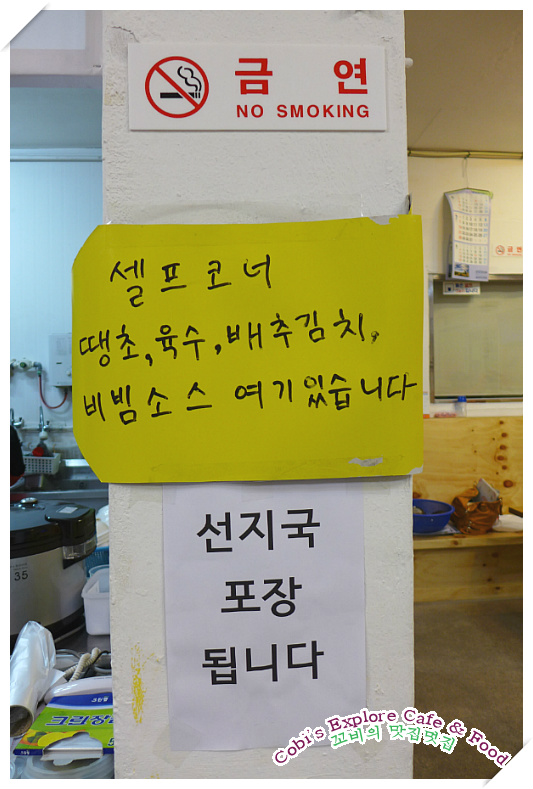 금 연
NO SMOKING
셀프코너
땡초,육수,배추김치,
비빔소스 여기있습니다
선지국
포장
됩니다
금연
35
크린장
Cobi's Explore Cafe & Food
꼬비의 맛집멋집